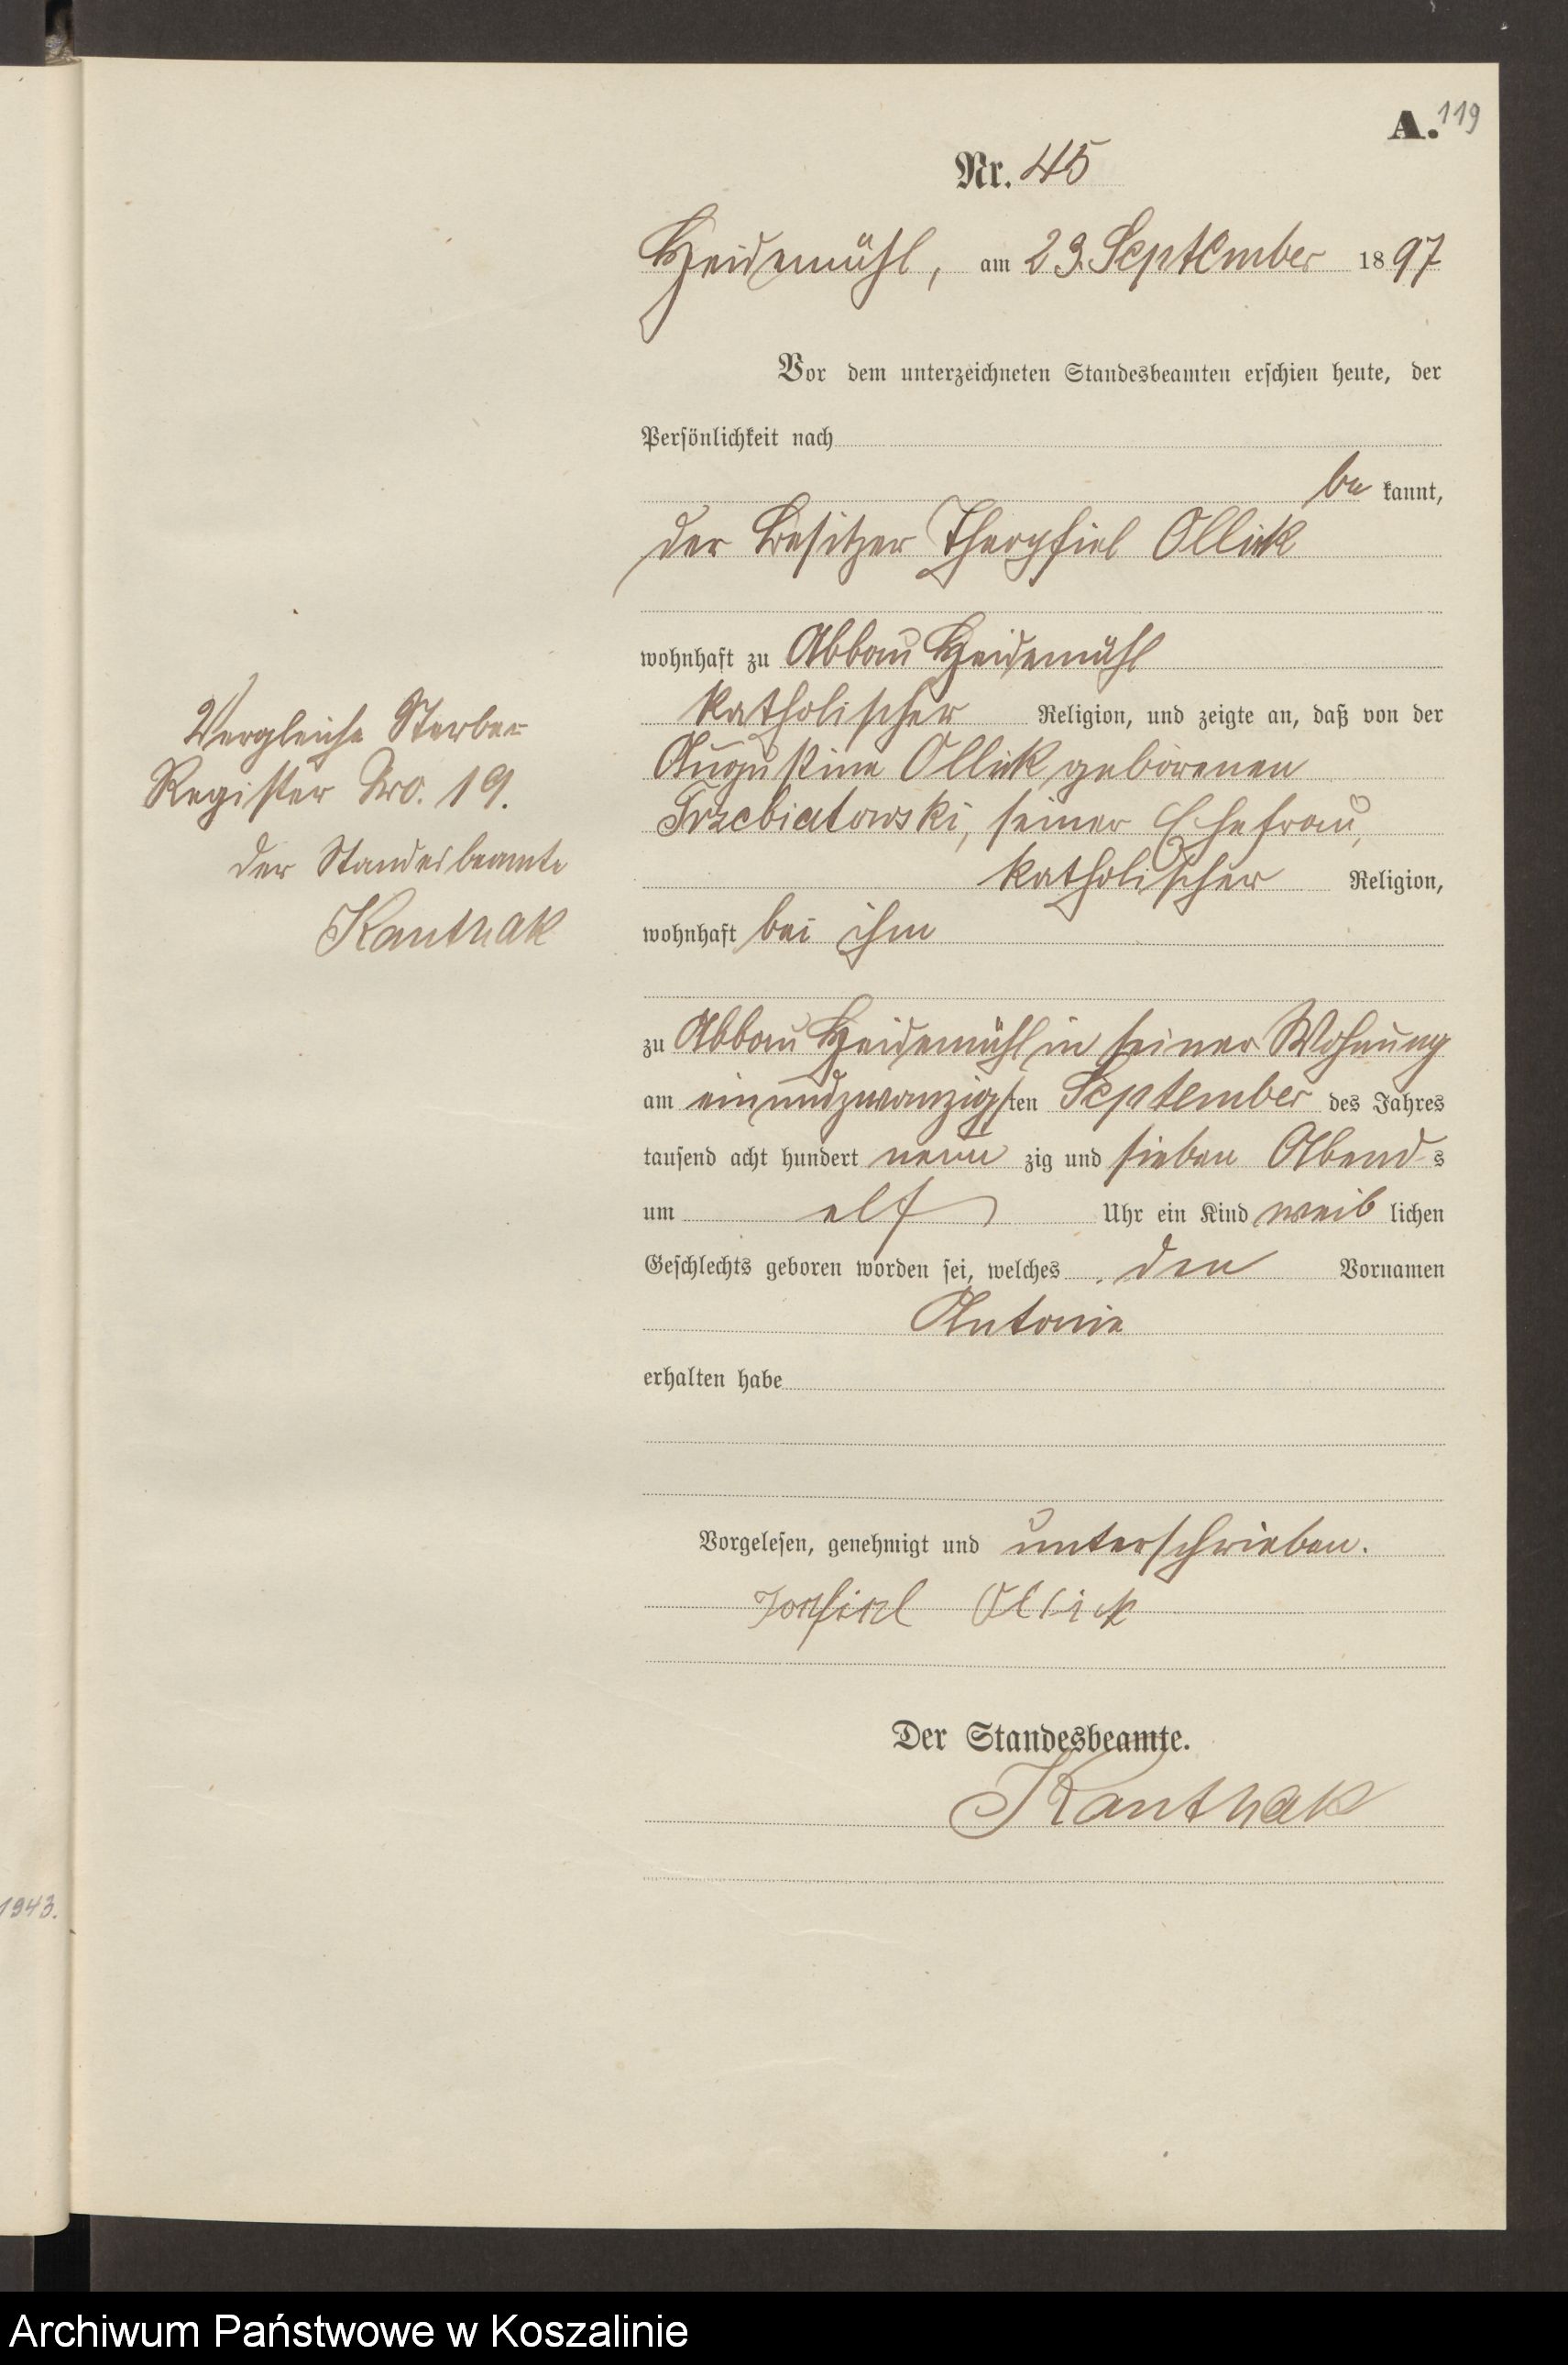 A. 119
Nr. 45
Heidemühl, am 23. September 1897
Vor dem unterzeichneten Standesbeamten erschien heute, der
Persönlichkeit nach
be kannt,
der Besitzer Theophiel Ollick
wohnhaft zu Abbau Heidemühl
katholischer Religion, und zeigte an, daß von der
Augustine Ollick geborenen
Trzebiatowski, seiner Ehefrau,
katholischer Religion,
wohnhaft bei ihm
zu Abbau Heidemühl in seiner Wohnung
am einundzwanzigsten September des Jahres
tausend acht hundert neun zig und sieben Abends
um elf Uhr ein Kind weib lichen
Geschlechts geboren worden sei, welches den Vornamen
Antonie
erhalten habe
Vorgelesen, genehmigt und unterschrieben.
Ollick
Der Standesbeamte.
Kanthak
Vergleiche Sterbe-
Register Nro. 19.
Der Standesbeamte
Kanthak
1943.
Archiwum Państwowe w Koszalinie